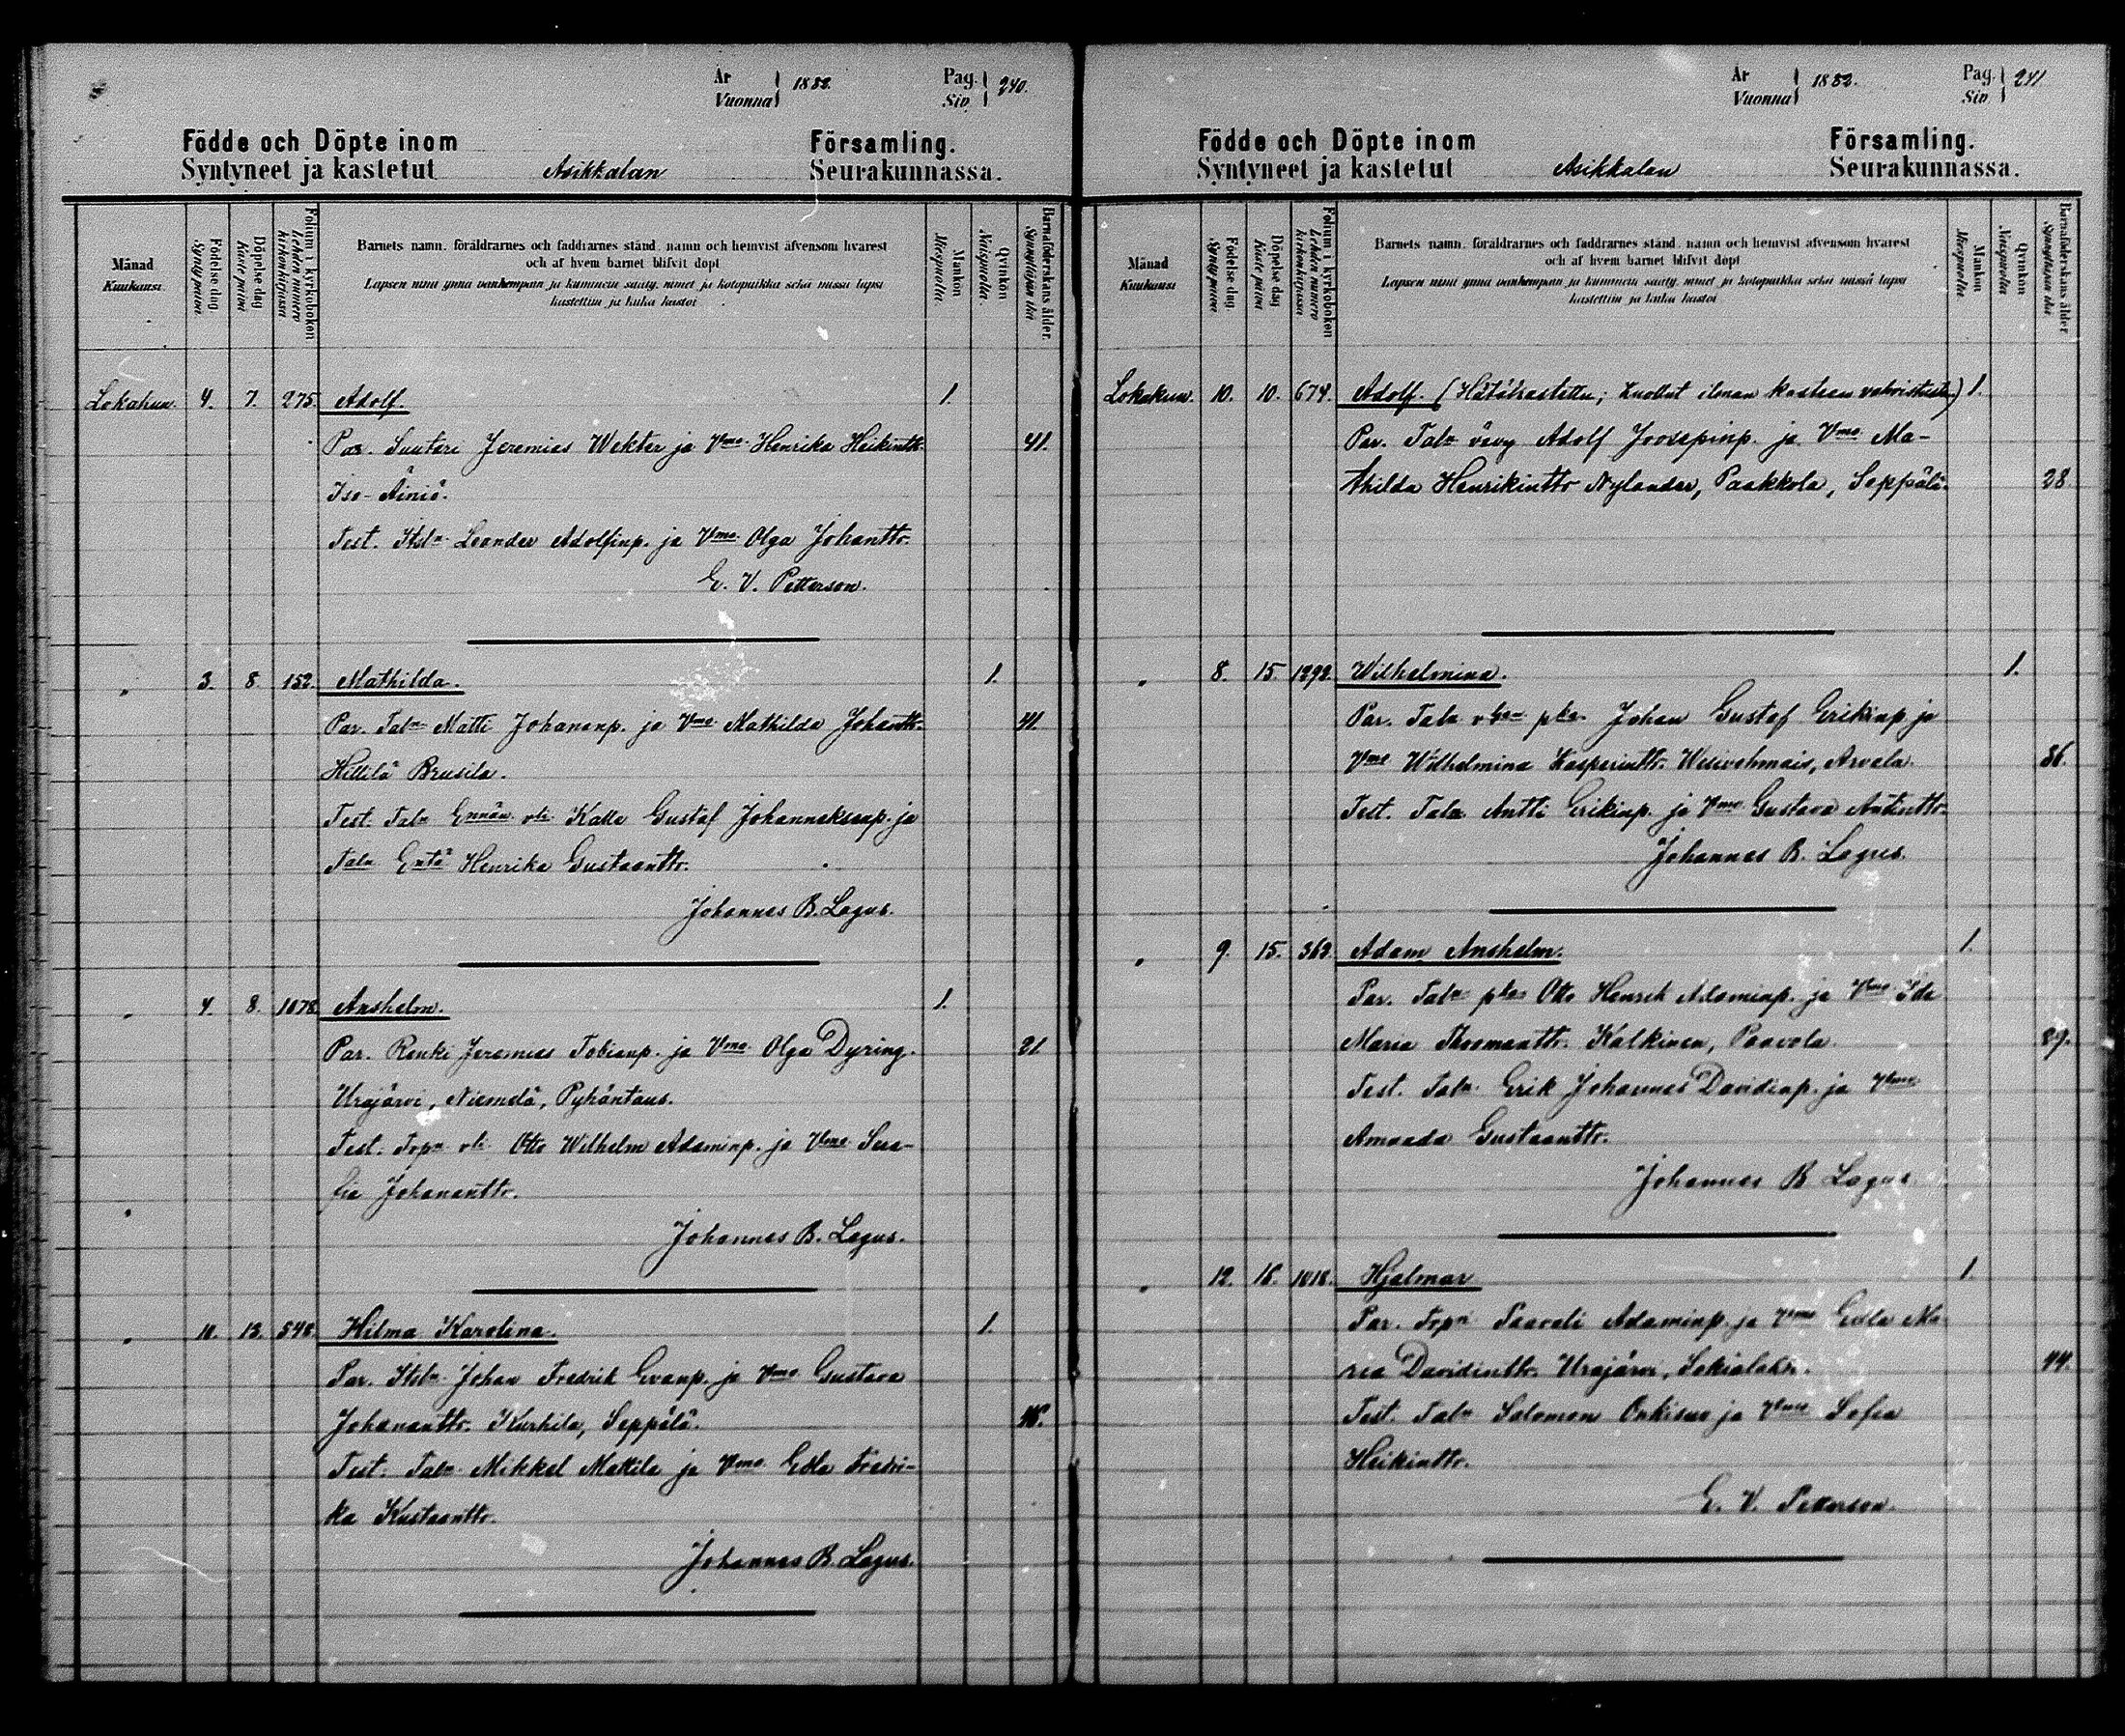 År
Vuonna 1882.
Pag.
Siv. 240.
Födde och Döpte inom Församling.
Syntyneet ja kastetut Asikkalan Seurakunnassa.
Månad
Kuukausi.
Födelse dag
Syntypäivä
Döpelse dag
Kaste päivä
Folium i kyrkoboken
Lehden numero
kirkonkirjassa
Barnets namn, föräldrarnes och faddrarnes stånd, namn och hemvist äfvensom hvarest
och af hvem barnet blifvit döpt
Lapsen nimi ynnä vanhempain ja kummein sääty, nimet ja kotopaikka sekä missä lapsi
kastettiin ja kuka kastoi
Mankön
Miespuolia
Qvinkön
Naispuolia.
Barnaföderskans ålder.
Synnyttäjän ikä
Lokakuu. 4. 7. 275. Adolf. 1.
Par. Suutari Jeremias Wekter ja Vmo Henrika Heikintt. 41.
Iso-Äiniö.
Test. Itsln Leander Adolfinp. ja Vmo Olga Johantt.
E. V. Petterson.
" 3. 8. 152. Mathilda. 1.
Par. Taln Matti Johananp. ja Vmo Mathilda Johantt. 41.
Hillilä Brusila.
Test. Taln Ennän vli Kalle Gustaf Johanneksenp. ja
Taln Entä Henrika Gustaantt.
Johannes B. Lagus.
" 4. 8. 1078. Anshelm. 1.
Par. Renki Jeremias Tobianp. ja Vmo Olga Dyring. 21.
Urajärvi, Niemelä, Pyhäntaus.
Test. Trpn vli Otto Wilhelm Adaminp. ja Vmo Sera-
fia Johanantt.
Johannes B. Lagus.
" 11. 13. 548. Hilma Karolina. 1.
Par. Itsln Johan Fredrik Evanp. ja Vmo Gustava
Johanantt. Kurhila, Seppälä.
Test. Taln Mikkel Mattila ja Vmo Edla Fredri-
ka Kustaantt.
Johannes B. Lagus.
År
Vuonna 1882.
Pag.
Siv. 241
Födde och Döpte inom Församling.
Syntyneet ja kastetut Asikkalan Seurakunnassa.
Månad
Kuukausi
Födelse dag
Syntypäivä
Döpelse dag
Kaste päivä
Folium i kyrkoboken
Lehden numero
kirkonkirjassa
Barnets namn, föräldrarnes och faddrarnes stånd, namn och hemvist äfvensom hvarest
och af hvem barnet blifvit döpt
Lapsen nimi ynnä vanhempain ja kummein sääty, nimet ja kotopaikka sekä missä lapsi
kastettiin ja kuka kastoi
Mankön
Miespuolia
Qvinkön
Naispuolia
Barnaföderskans ålder
Synnyttäjän ikä
Lokakuu. 10. 10. 674. Adolf. (Hätäkastettu; kuollut ilman kasteen vahvistusta) 1.
Par. Taln vävy Adolf Joosepinp. ja Vmo Ma-
thilda Henrikintt Nylander, Paakkola, Seppälä. 28
" 8. 15. 1292. Wilhelmina. 1.
Par. Taln vhan pka Johan Gustaf Erikinp ja
Vmo Wilhelmina Kasperintt. Wesivehmais, Arvela. 36.
Test. Taln Antti Erikinp. ja Vmo Gustava Antintt.
Johannes B. Lagus.
" 9. 15. 363. Adam Anshelm. 1.
Par. Taln pka Otto Henrik Adaminp. ja Vmo Ida
Maria Thoomantt. Kalkinen, Paavola.
Test. Taln Erik Johannes Davidinp. ja Vmo
Amanda Gustaantt.
Johannes B Lagus
" 12. 16. 1018. Hjalmar 1.
Par. Trpri Paavali Adaminp. ja Vmo Edla Ma
ria Davidintt. Urajärvi, 44.
Test. Taln Salomon ja Vmo Sofia
Heikintt.
E. V. Petterson.